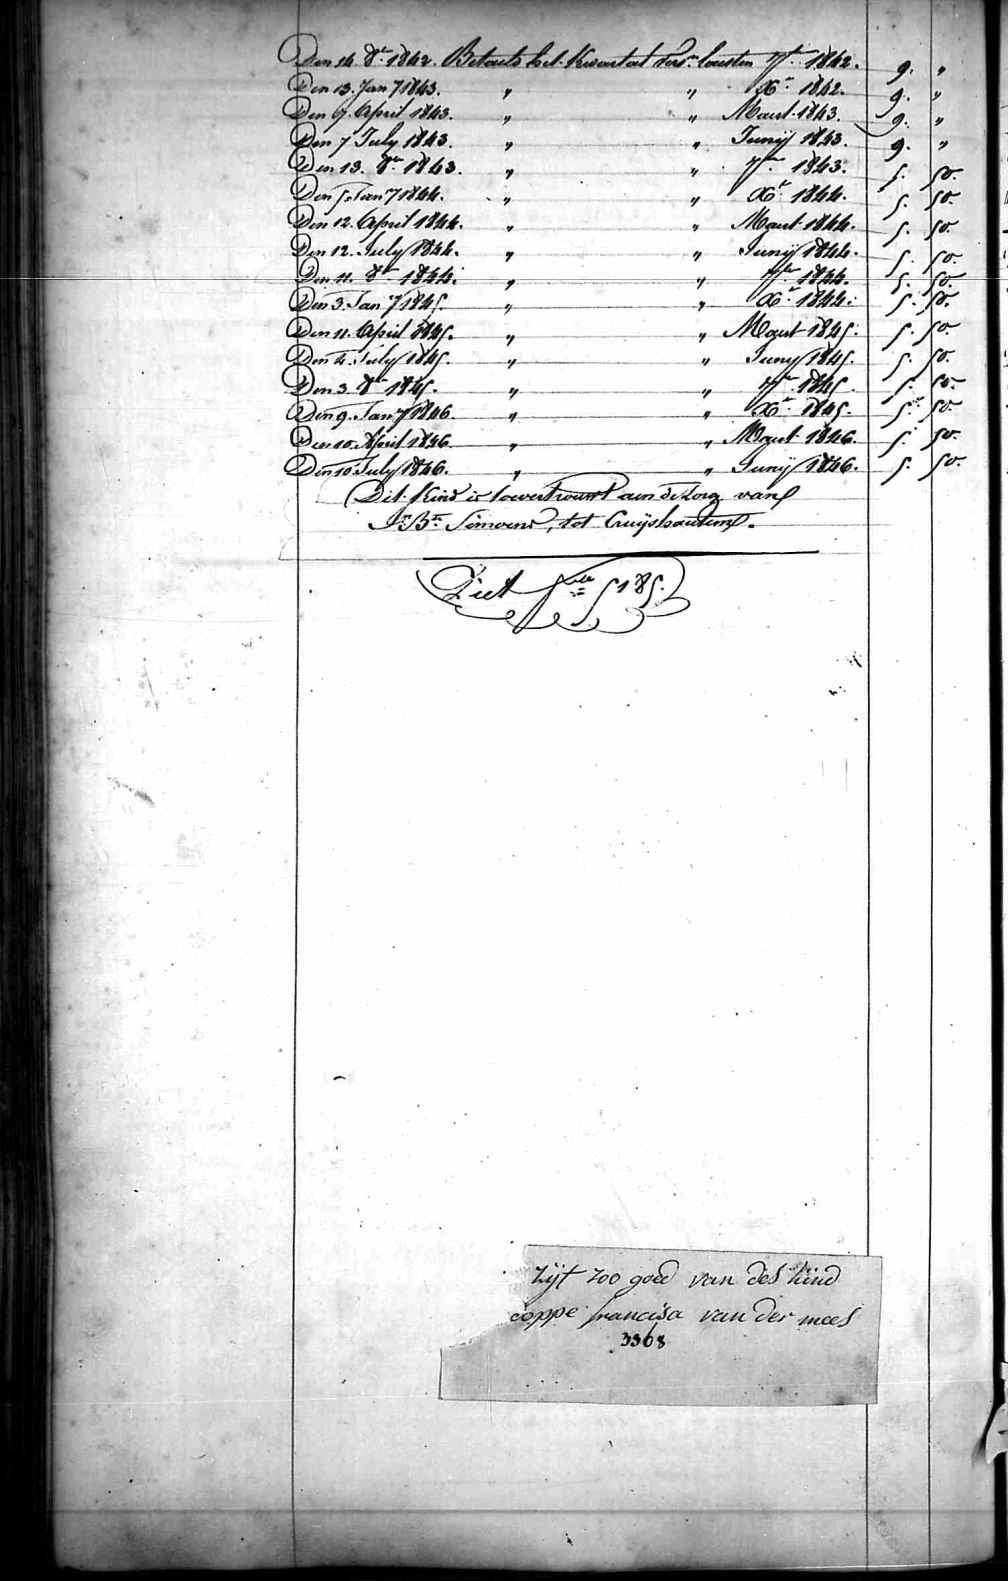 Den 14. 8re 1842. Betaelt het kwartael vers. lausten 7re 1842. 9. "
Den 13. Jany 1843. " " Xre 1842. 9. "
Den 9. April 1843. " " Maert 1843. 9. "
Den 7 July 1843. " " Junij 1843. 9. "
Den 13. 8re 1843. " " 7re 1843. 5. 50.
Den 5. Jany 1844. " " Xre 1844. 5. 50.
Den 12. April 1844. " " Maert 1844. 5. 50.
Den 12. July 1844. " " Junij 1844. 5. 50.
Den 11. 8re 1844. " " 7re 1844. 5. 50.
Den 3. Jany 1845. " " Xre 1844. 5. 50.
Den 11. April 1845. " " Maert 1845. 5. 50.
Den 4. July 1845. " " Juny 1845. 5. 50.
Den 3. 8re 1845. " " 7re 1845. 5. 50.
Den 9. Jany 1846. " " Xre 1845. 5. 50.
Den 10. April 1846. " " Maert 1846. 5. 50.
Den 10 July 1846. " " Junij 1846. 5. 50.
Dit kind is toevertrouwt aen de zorg van
Bte Simoens, tot Cruijshautem.
Ziet 5185.
zijt zoo goed van des kind
coppe francisa van der mees
3368